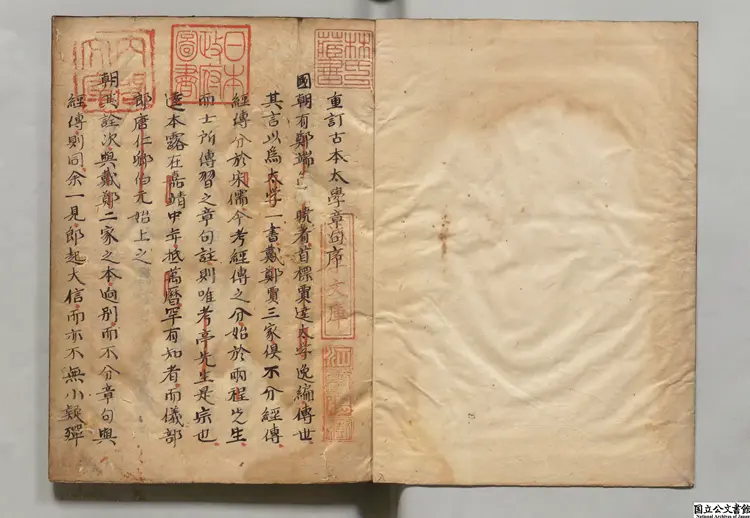 重訂古本大學章句序
國朝有鄭端𥳑曉者首標賈逵大學逸編傳世
其言以爲大學一書戴鄭賈三家俱不分經傳
經傳分於宋儒今考經傳之分始於兩程先生
而士所傳習之章句註則唯考亭先生是宗也
逵本露在嘉靖中年抵萬曆罕有知者而儀部
郎唐仁卿伯元始上之
朝其詮次與戴鄭二家之本逈別而不分章句與
經傳則同余一見郎起大信而亦不無小疑殫
日本
政府
圖書
文庫
国立公文書館
National Archives of Japan